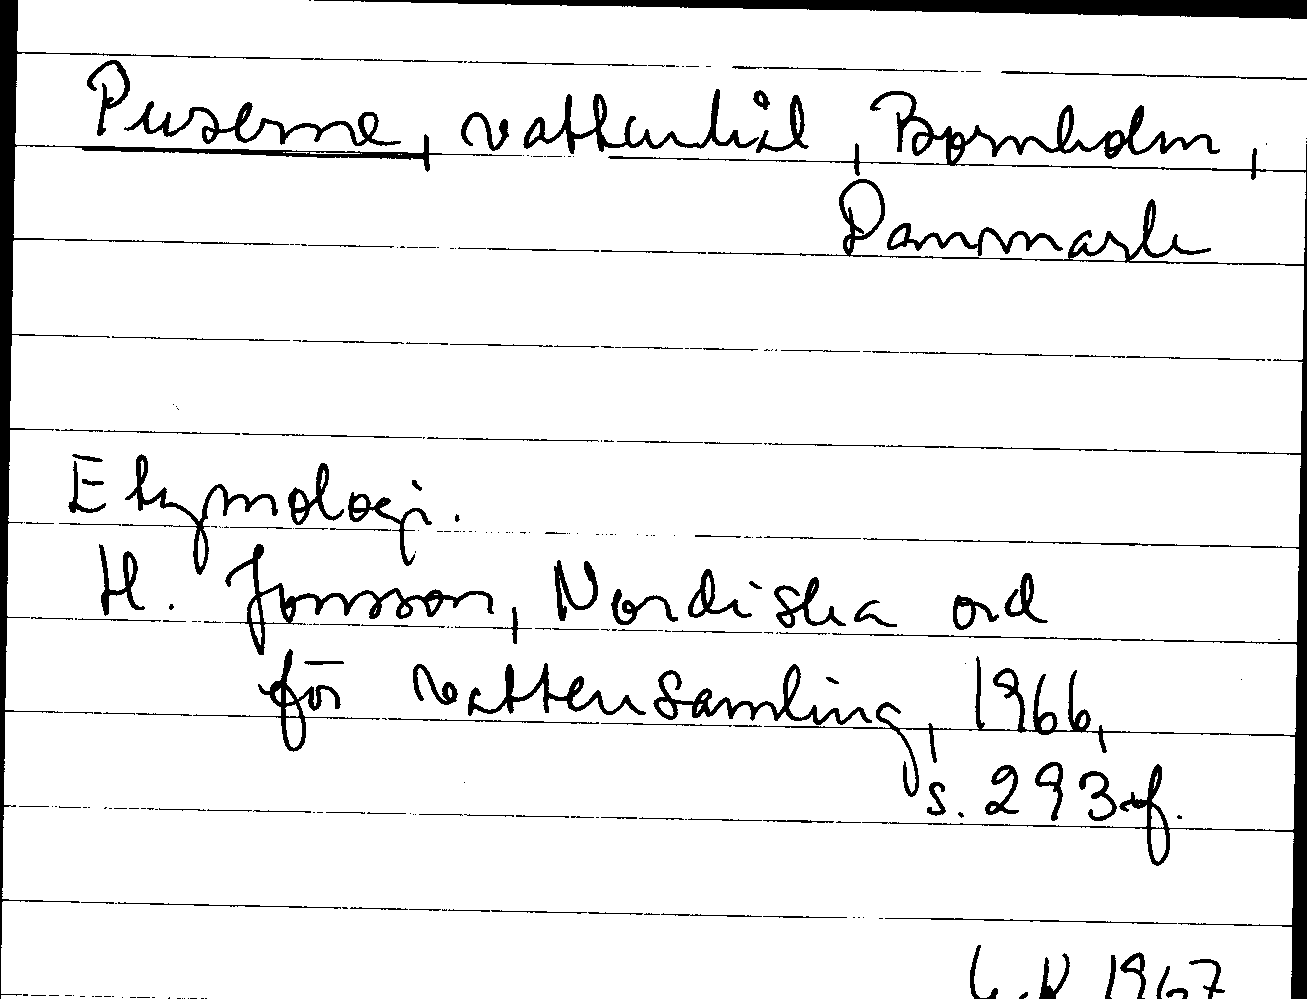 Puserne, vattenhål, Bornholm,
Danmark
Etymologi.
H. Jonsson, Nordiska ord
för vattensamling, 1966,
s. 293 f.
1967